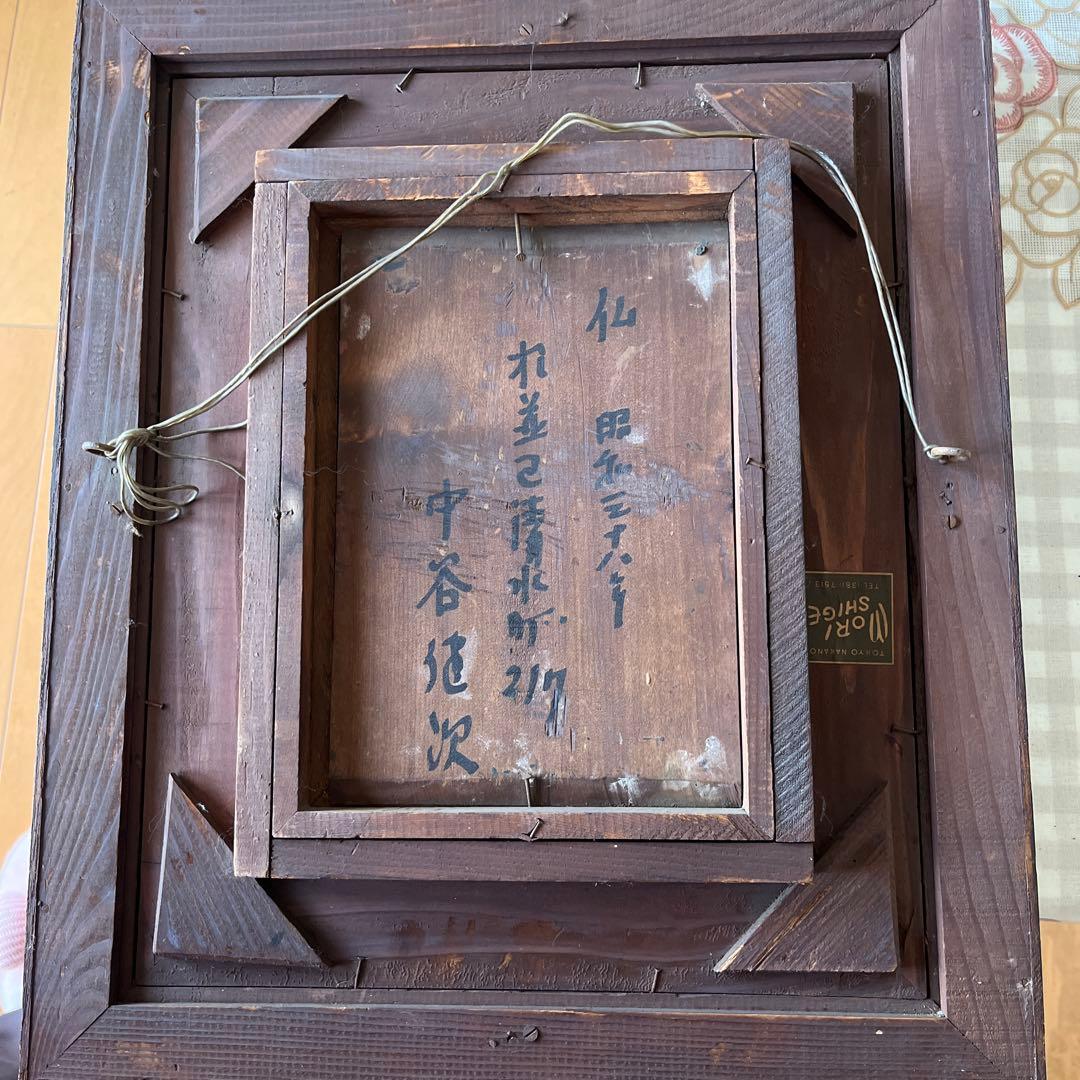 仏 昭和三十八年
杉並区清水町217
中谷健次
TOKYO NAKANO
MORI
SHIGE
TEL (381) 7513